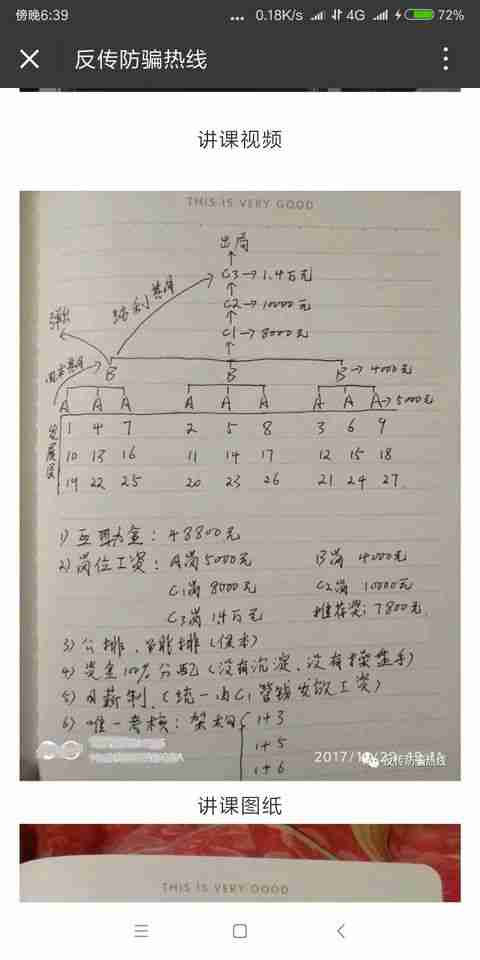 傍晚6:39
0.18K/s
4G
72%
反传防骗热线
讲课视频
THIS IS VERY GOOD
出局
C3→1.4万元
C2→10000元
C1→8000元
B B B→4000元
A A A A A A A A A→5000元
发展区
1 4 7 2 5 8 3 6 9
10 13 16 11 14 17 12 15 18
19 22 25 20 23 26 21 24 27
1) 互助金：48800元
2) 岗位工资：A岗5000元 B岗 4000元
C1岗 8000元 C2岗 10000元
C3岗 1.4万元 推荐奖：7800元
3) 公排、
4) 资金100%分配（没有沉淀、没有操盘手）
5) 月薪制、（统一由C1管钱发放工资）
6) 唯一考核：架构 1+3
1+5
1+6
2017/1
反传防骗热线
讲课图纸
THIS IS VERY GOOD